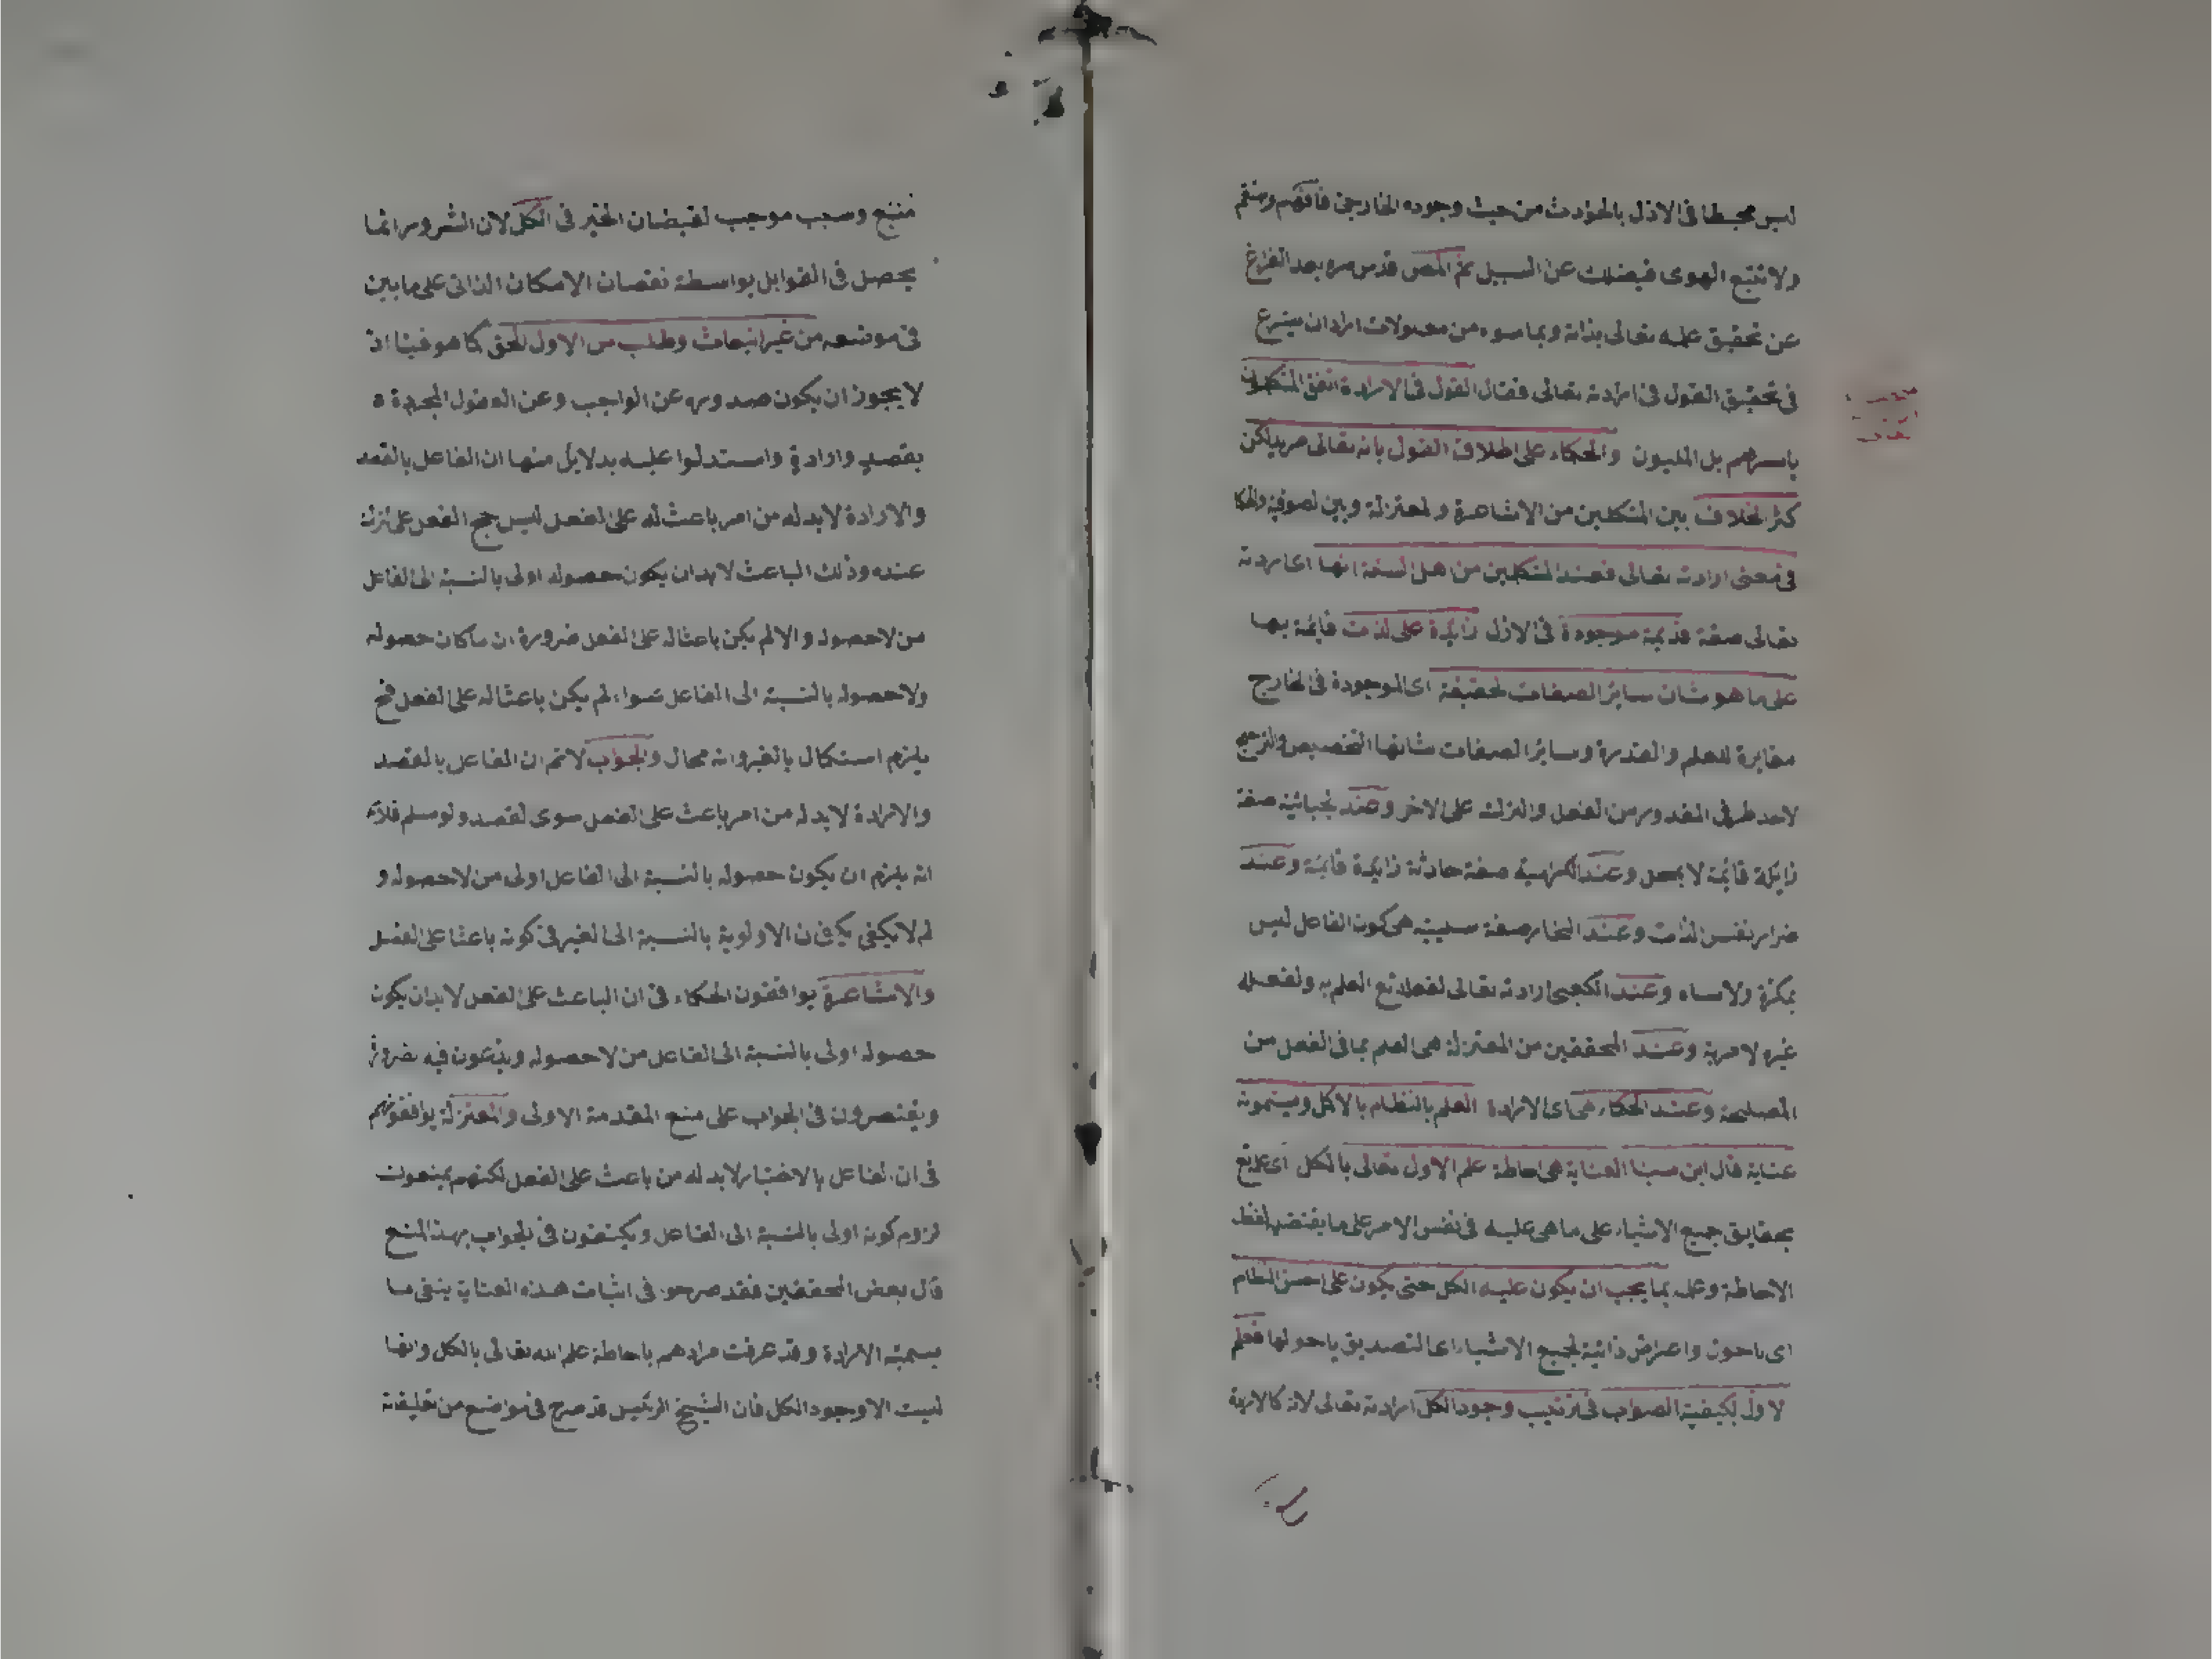 ليس محيطا فى الازل بالحوادث من حيث وجوده الخارجى فافهم وستقم
ولا تتبع الهوى فيضلك عن السبيل ثم المص قدس سره بعد الفراغ
عن تحقيق علمه تعالى بذاته وبما سوه من معلولات اراد ان يشرع
فى تحقيق القول فى ارادته تعالى فقال القول فى الارادة اتفق المتكلمون
باسرهم بل المليون والحكاء على اطلاق القول بانه تعالى مريد لكن
كثر الخلاف بين المتكلمين من الاشاعرة ولمعتزلة وبين لصوفية والحكا
فى معنى ارادته تعالى فعند المتكلمين من اهل السنة انها اى ارادته
تعالى صفة قديمة موجودة فى الازل زايدة على لذات قايمة بها
على ما هو شان ساير الصفات لحقيقة اى الموجودة فى الخارج
مغايرة للعلم والقدرة وساير الصفات شانها التخصيص والترجيح
لاحد طرفى المقدور من الفعل والترك على الاخر وعند لجبائية صفة
زايدة قايمة لا بمحل وعند الكرامية صفة حادثة زايدة قايمة وعند
ضرار نفس لذات وعند النجار صفة سلبية هى كون الفاعل ليس
بمكره ولا ساه وعند الكعبى ارادته تعالى لفعله تع العلم به ولفعل
غيره لامر به وعند المحققين من المعتزلة هى العلم بما فى الفعل من
المصلحة وعند الحكاء هى اى الارادة العلم بالنظام بالاكل ويسمونه
عناية قال ابن سينا العناية هى احاطة علم الاول تعالى بالكل اى علمه تع
بحقايق جميع الاشياء على ما هى عليه فى نفس الامر على ما يقتضيه لفظ
الاحاطة وعلمه بما يجب ان يكون عليه الكل حتى يكون على احسن النظام
اى باحون واعراض ذاتية لجميع الاشياء اى التصديق باحولها فعلم
لاول بكيفية الصواب فى ترتيب وجود الكل ارادته تعالى لانه كالارادة
منبع وسبب موجب لفيضان الخير فى الكل لان الشرور انما
يحصل فى القوابل بواسطة نقصان الامكان الذاتى على ما بين
فى موضعه من غير انبعاث وطلب من الاول الحق كما هو فينا اذ
لا يجوز ان يكون صدوره عن الواجب وعن العقول المجردة
بقصد وارادة واستدلوا عليه بدلايل منها ان الفاعل بالقصد
والارادة لا بد له من امر باعث له على الفعل ليس جح الفعل على لترك
عنده وذلك الباعث لا بد ان يكون حصوله اولى بالنسبة الى الفاعل
من لاحصوله والا لم يكن باعثا له على الفعل ضرورة ان ما كان حصوله
ولا حصوله بالنسبة الى الفاعل سواء لم يكن باعثا له على الفعل فح
يلزم استكمال بالغير وانه محال والجواب لا نم ان الفاعل بالقصد
والارادة لا بد له من امر باعث على الفعل سوى لقصد ولو سلم فلانم
انه يلزم ان يكون حصوله بالنسبة الى الفاعل اولى من لاحصوله و
لم لا يكفى يكون الاولوية بالنسبة الى الغير فى كونه باعثا على الفعل
والاشاعرة يوافقون الحكاء فى ان الباعث على الفعل لا بد ان يكون
حصوله اولى بالنسبة الى الفاعل من لاحصوله ويدعون فيه ضرورة
ويقتصرون فى الجواب على منع المقدمة الاولى والمعتزلة يوافقونهم
فى ان الفاعل بالاختيار لا بد له من باعث على الفعل لكنهم يمنعون
لزوم كونه اولى بالنسبة الى الفاعل ويكتفون فى لجواب بهذا المنع
قال بعض المحققين فقد صرحوا فى اثبات هذه العناية بنفى ما
يسميه الارادة وقد عرفت مرادهم باحاطة علم الله تعالى بالكل وانها
ليست الا وجود الكل فان الشيخ الرئيس قد صرح فى مواضع من تعليقاته